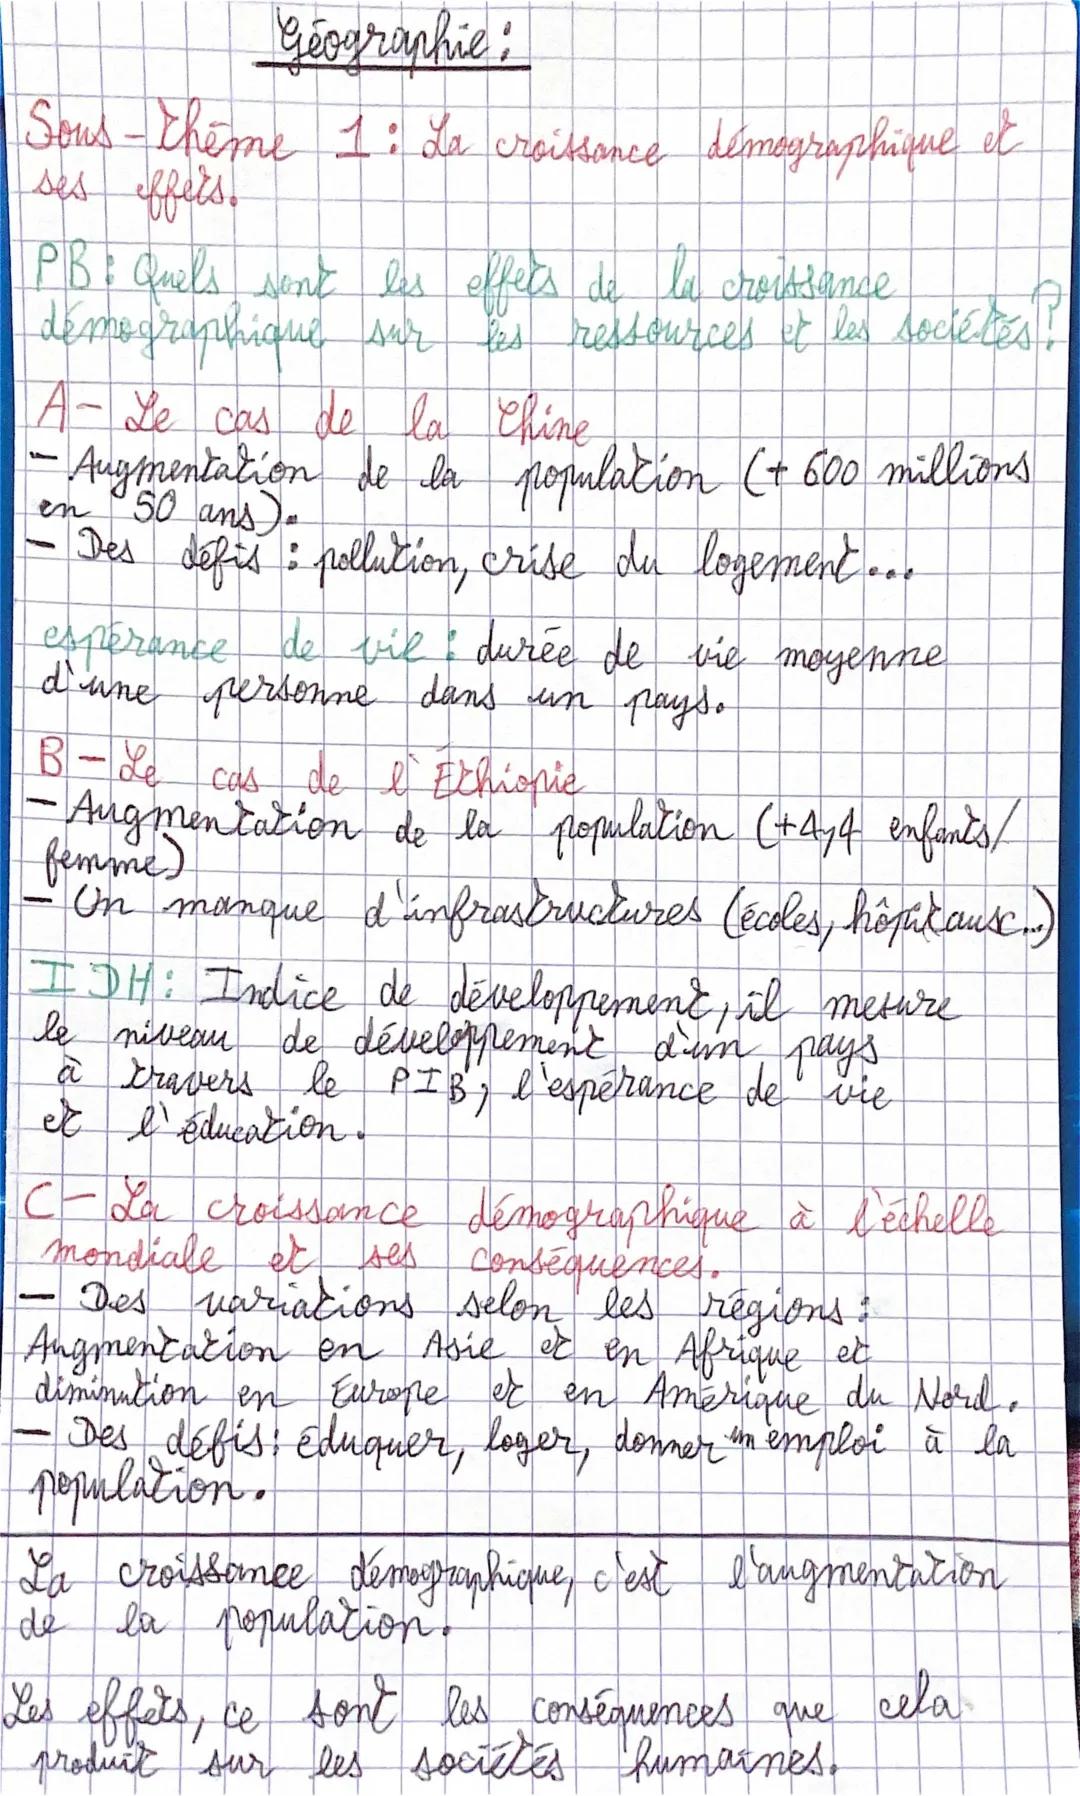 Géographie :
Sous-thème 1 : La croissance démographique et
ses effets.
PB : Quels sont les effets de la croissance
démographique sur les ressources et les sociétés ?
A- Le cas de la Chine
- Augmentation de la population (+ 600 millions
en 50 ans).
- Des défis : pollution, crise du logement...
espérance de vie : durée de vie moyenne
d'une personne dans un pays.
B - Le cas de l'Ethiopie
- Augmentation de la population (+4,4 enfants/
femme)
- Un manque d'infrastructures (écoles, hôpitaux...)
IDH : Indice de développement, il mesure
le niveau de développement d'un pays
à travers le PIB, l'espérance de vie
et l'éducation.
C - La croissance démographique à l'échelle
mondiale et ses conséquences.
- Des variations selon les régions :
Augmentation en Asie et en Afrique et
diminution en Europe et en Amérique du Nord.
- Des défis : éduquer, loger, donner un emploi à la
population.
La croissance démographique, c'est l'augmentation
de la population.
Les effets, ce sont les conséquences que cela
produit sur les sociétés humaines.